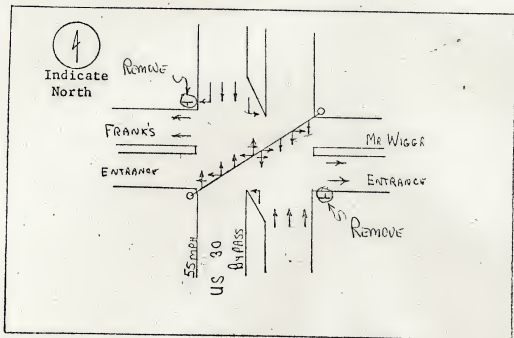 Indicate
North
REMOVE
FRANK'S
ENTRANCE
MR WIGGS
ENTRANCE
REMOVE
55 MPH
US 30
BYPASS